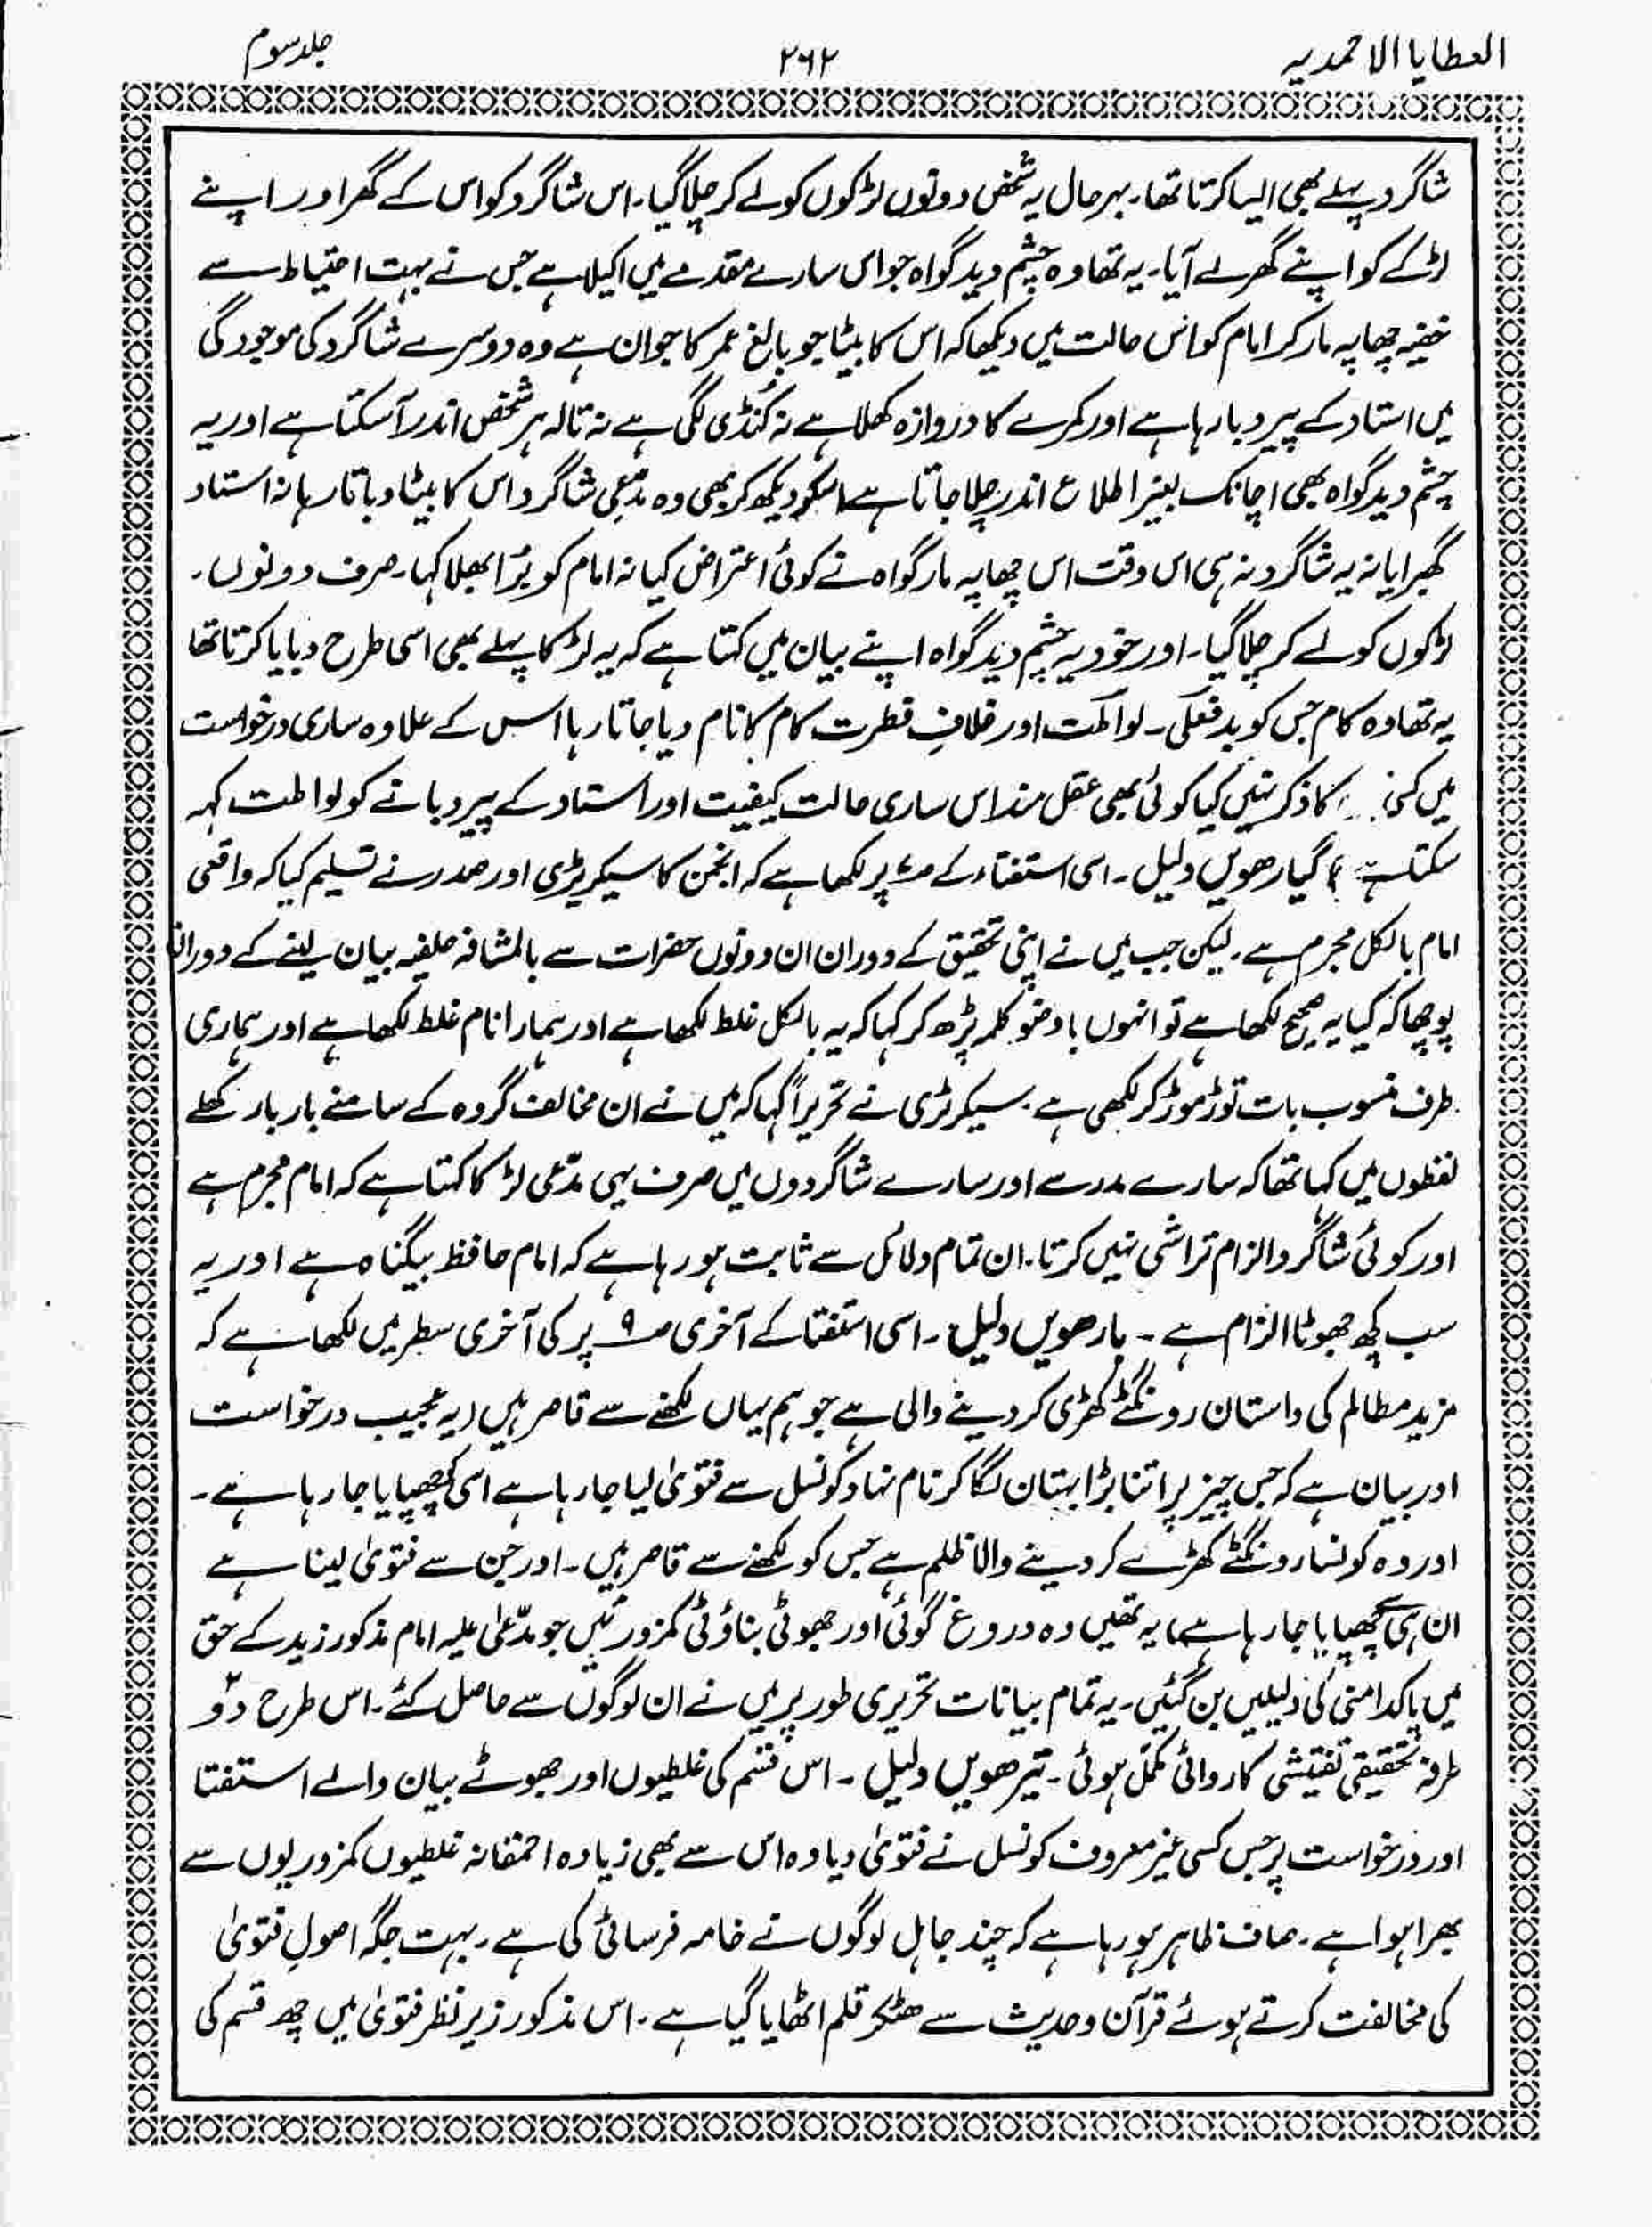 العطایا الاحمدیہ
۲۶۲
جلد سوم
شاگرد پہلے بھی ایسا کرتا تھا۔ بہرحال یہ شخص دونوں لڑکوں کو لے کر چلا گیا۔ اس شاگرد کو اس کے گھر اور اپنے
لڑکے کو اپنے گھر لے آیا۔ یہ تھا وہ چشم دید گواہ جو اس سارے مقدمے میں اکیلا ہے جس نے بہت احتیاط سے
خفیہ چھاپہ مار کر امام کو اس حالت میں دیکھا کہ اس کا بیٹا جو بالغ عمر کا جوان ہے وہ دوسرے شاگرد کی موجودگی
میں استاد کے پیر دبا رہا ہے اور کمرے کا دروازہ کھلا ہے نہ کُنڈی لگی ہے نہ تالہ ہر شخص اندر آسکتا ہے اور یہ
چشم دید گواہ بھی اچانک بغیر اطلاع اندر چلا جاتا ہے اسکو دیکھ کر بھی وہ مدّعی شاگرد اس کا بیٹا دباتا رہا نہ استاد
گھبرایا نہ یہ شاگرد نہ ہی اس وقت اس چھاپہ مار گواہ نے کوئی اعتراض کیا نہ امام کو بُرا بھلا کہا۔ صرف دونوں۔
لڑکوں کو لے کر چلا گیا۔ اور خود یہ چشم دید گواہ اپنے بیان میں کہتا ہے کہ یہ لڑکا پہلے بھی اسی طرح دبایا کرتا تھا
یہ تھا وہ کام جس کو بدفعلی۔ لواطت اور خلافِ فطرت کام کا نام دیا جاتا رہا اس کے علاوہ ساری درخواست
میں کسی کا ذکر نہیں کیا کوئی بھی عقل مند اس ساری حالت کیفیت اور استاد کے پیر دبانے کو لواطت کہہ
سکتا ہے ؟ گیارھویں دلیل۔ اسی استفتاء کے پر لکھا ہے کہ انجمن کا سیکریٹری اور صدر نے تسلیم کیا کہ واقعی
امام بالکل مجرم ہے۔ لیکن جب میں نے اپنی تحقیق کے دوران ان دونوں حضرات سے بالمشافہ حلفیہ بیان لینے کے دوران
پوچھا کہ کیا یہ صحیح لکھا ہے تو انہوں باوضو کلمہ پڑھ کر کہا کہ یہ بالکل غلط لکھا ہے اور ہمارا نام غلط لکھا ہے اور ہماری
طرف منسوب بات توڑ موڑ کر لکھی ہے۔ سیکرٹری نے تحریراً کہا کہ میں نے ان مخالف گروہ کے سامنے بار بار کھلے
لفظوں میں کہا تھا کہ سارے مدرسے اور سارے شاگردوں میں صرف یہی مدّعی لڑکا کہتا ہے کہ امام مجرم ہے
اور کوئی شاگرد الزام تراشی نہیں کرتا۔ ان تمام دلائل سے ثابت ہو رہا ہے کہ امام حافظ بیگناہ ہے اور یہ
سب کچھ جھوٹا الزام ہے۔ بارھویں دلیل۔ اسی استفتا کے آخری صـ۹ پر کی آخری سطر میں لکھا ہے کہ
مزید مظالم کی داستان رونگٹے کھڑی کر دینے والی ہے جو ہم یہاں لکھنے سے قاصر ہیں (یہ عجیب درخواست
اور بیان ہے کہ جس چیز پر اتنا بڑا بہتان لگا کر نام نہاد کونسل سے فتویٰ لیا جا رہا ہے اسی کو چھپایا جا رہا ہے۔
اور وہ کونسا رونگٹے کھڑے کر دینے والا ظلم ہے جس کو لکھنے سے قاصر ہیں۔ اور جن سے فتویٰ لینا ہے
ان ہی سے چھپایا جا رہا ہے، یہ تھیں وہ دروغ گوئی اور جھوٹی بناوٹی کمزوریَیں جو مدّعیٰ علیہ امام مذکور زید کے حق
میں پاکدامنی کی دلیلیں بن گئیں۔ یہ تمام بیانات تحریری طور پر میں نے ان لوگوں سے حاصل کئے۔ اس طرح دوؔ
طرفہ تحقیقی تفتیشی کاروائی مکمّل ہوئی۔ تیرھویں دلیل۔ اس قسم کی غلطیوں اور جھوٹے بیان والے استفتا
اور درخواست پر جس کسی غیر معروف کونسل نے فتویٰ دیا وہ اس سے بھی زیادہ احمقانہ غلطیوں کمزوریوں سے
بھرا ہوا ہے۔ صاف ظاہر ہو رہا ہے کہ چند جاہل لوگوں نے خامہ فرسائی کی ہے۔ بہت جگہ اصولِ فتویٰ
کی مخالفت کرتے ہوئے قرآن و حدیث سے ھٹکر قلم اٹھایا گیا ہے۔ اس مذکور زیر نظر فتویٰ میں چھ قسم کی